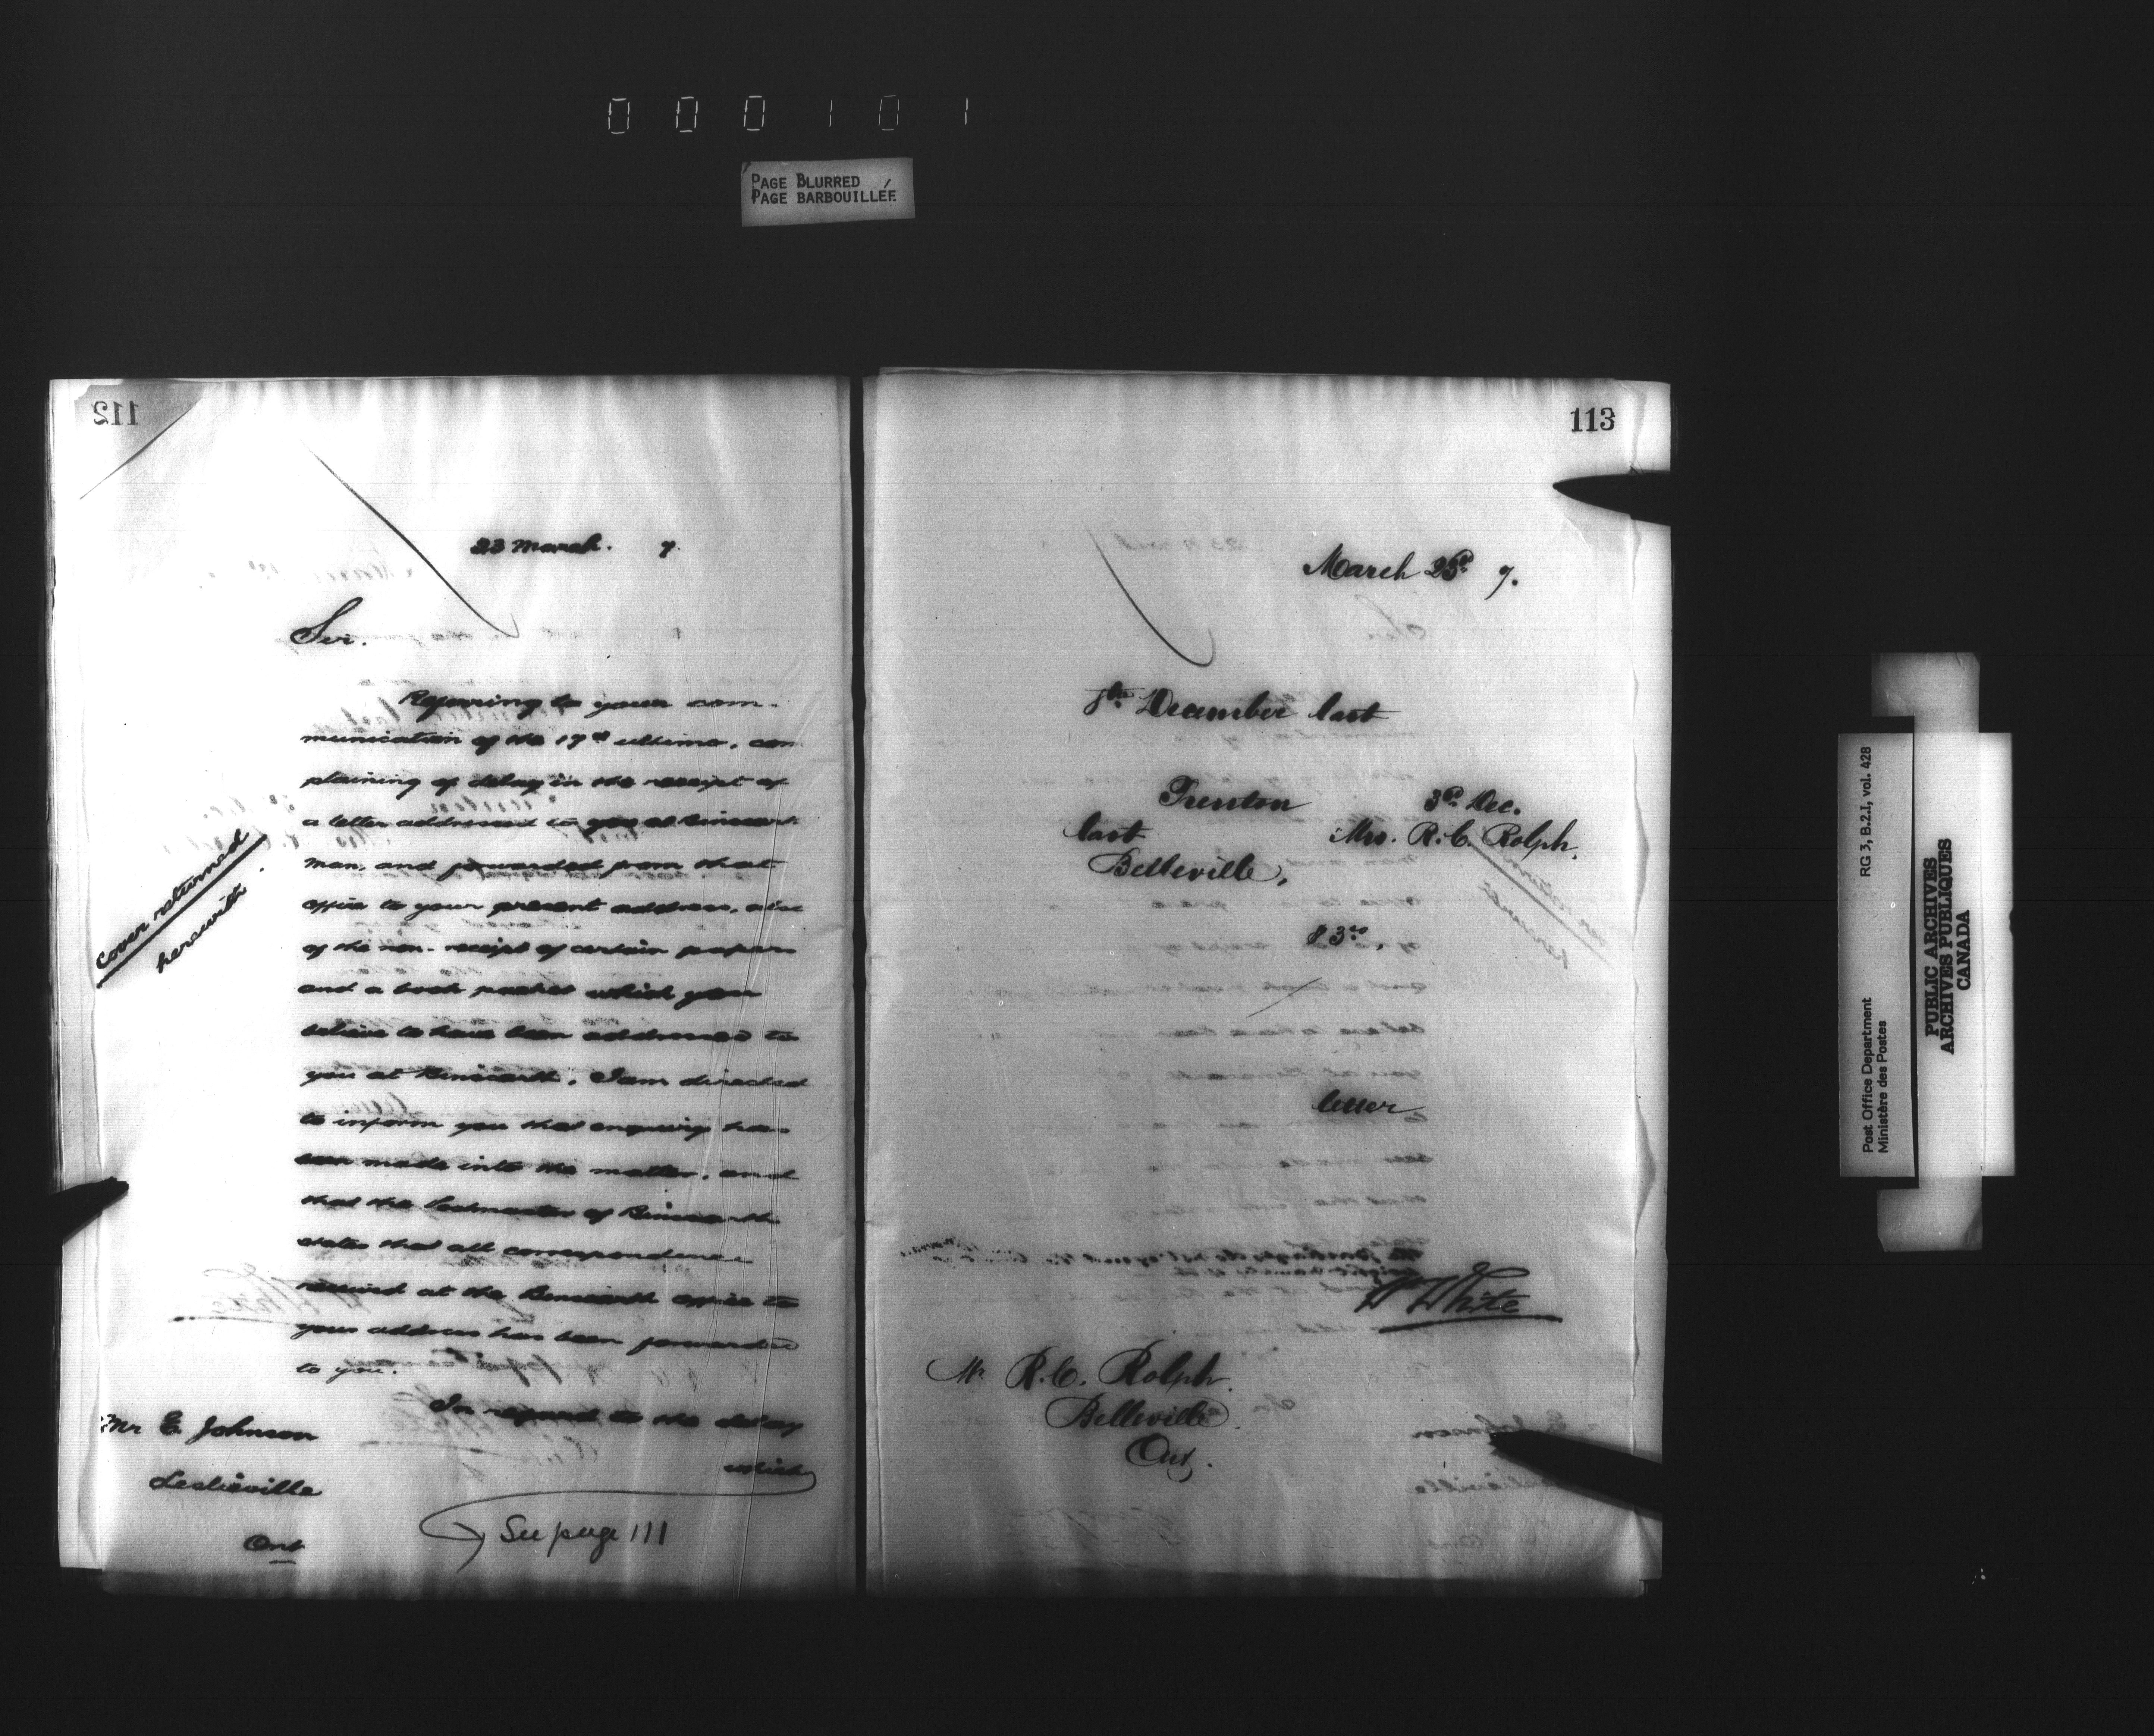 000101
PAGE BLURRED
PAGE BARBOUILLÉE
112
23 March. 7.
Sir.
Referring to your com-
munication of the 17th ultimo, com
plaining of delay in the receipt of
a letter addressed to you at Binscarth
Man, and forwarded from that
office to your present address, also
of the non-receipt of certain papers
and a book packet which you
believe to have been addressed to
you at Binscarth, I am directed
to inform you that enquiry has
been made into the matter, and
that the Postmaster of Binscarth
states that all correspondence
received at the Binscarth office to
your address has been forwarded
to you.
In regard to the delay
which
Cover returned
herewith.
Mr E. Johnson
Leslieville
Ont
See page 111
113
March 23rd 7.
8th December last
Trenton 3rd Dec.
last Mrs. R. C. Rolph.
Belleville,
letter
W White
Mr R. C. Rolph.
Belleville.
Ont.
RG 3, B.2.I, vol. 428
Post Office Department
Ministère des Postes
PUBLIC ARCHIVES
ARCHIVES PUBLIQUES
CANADA